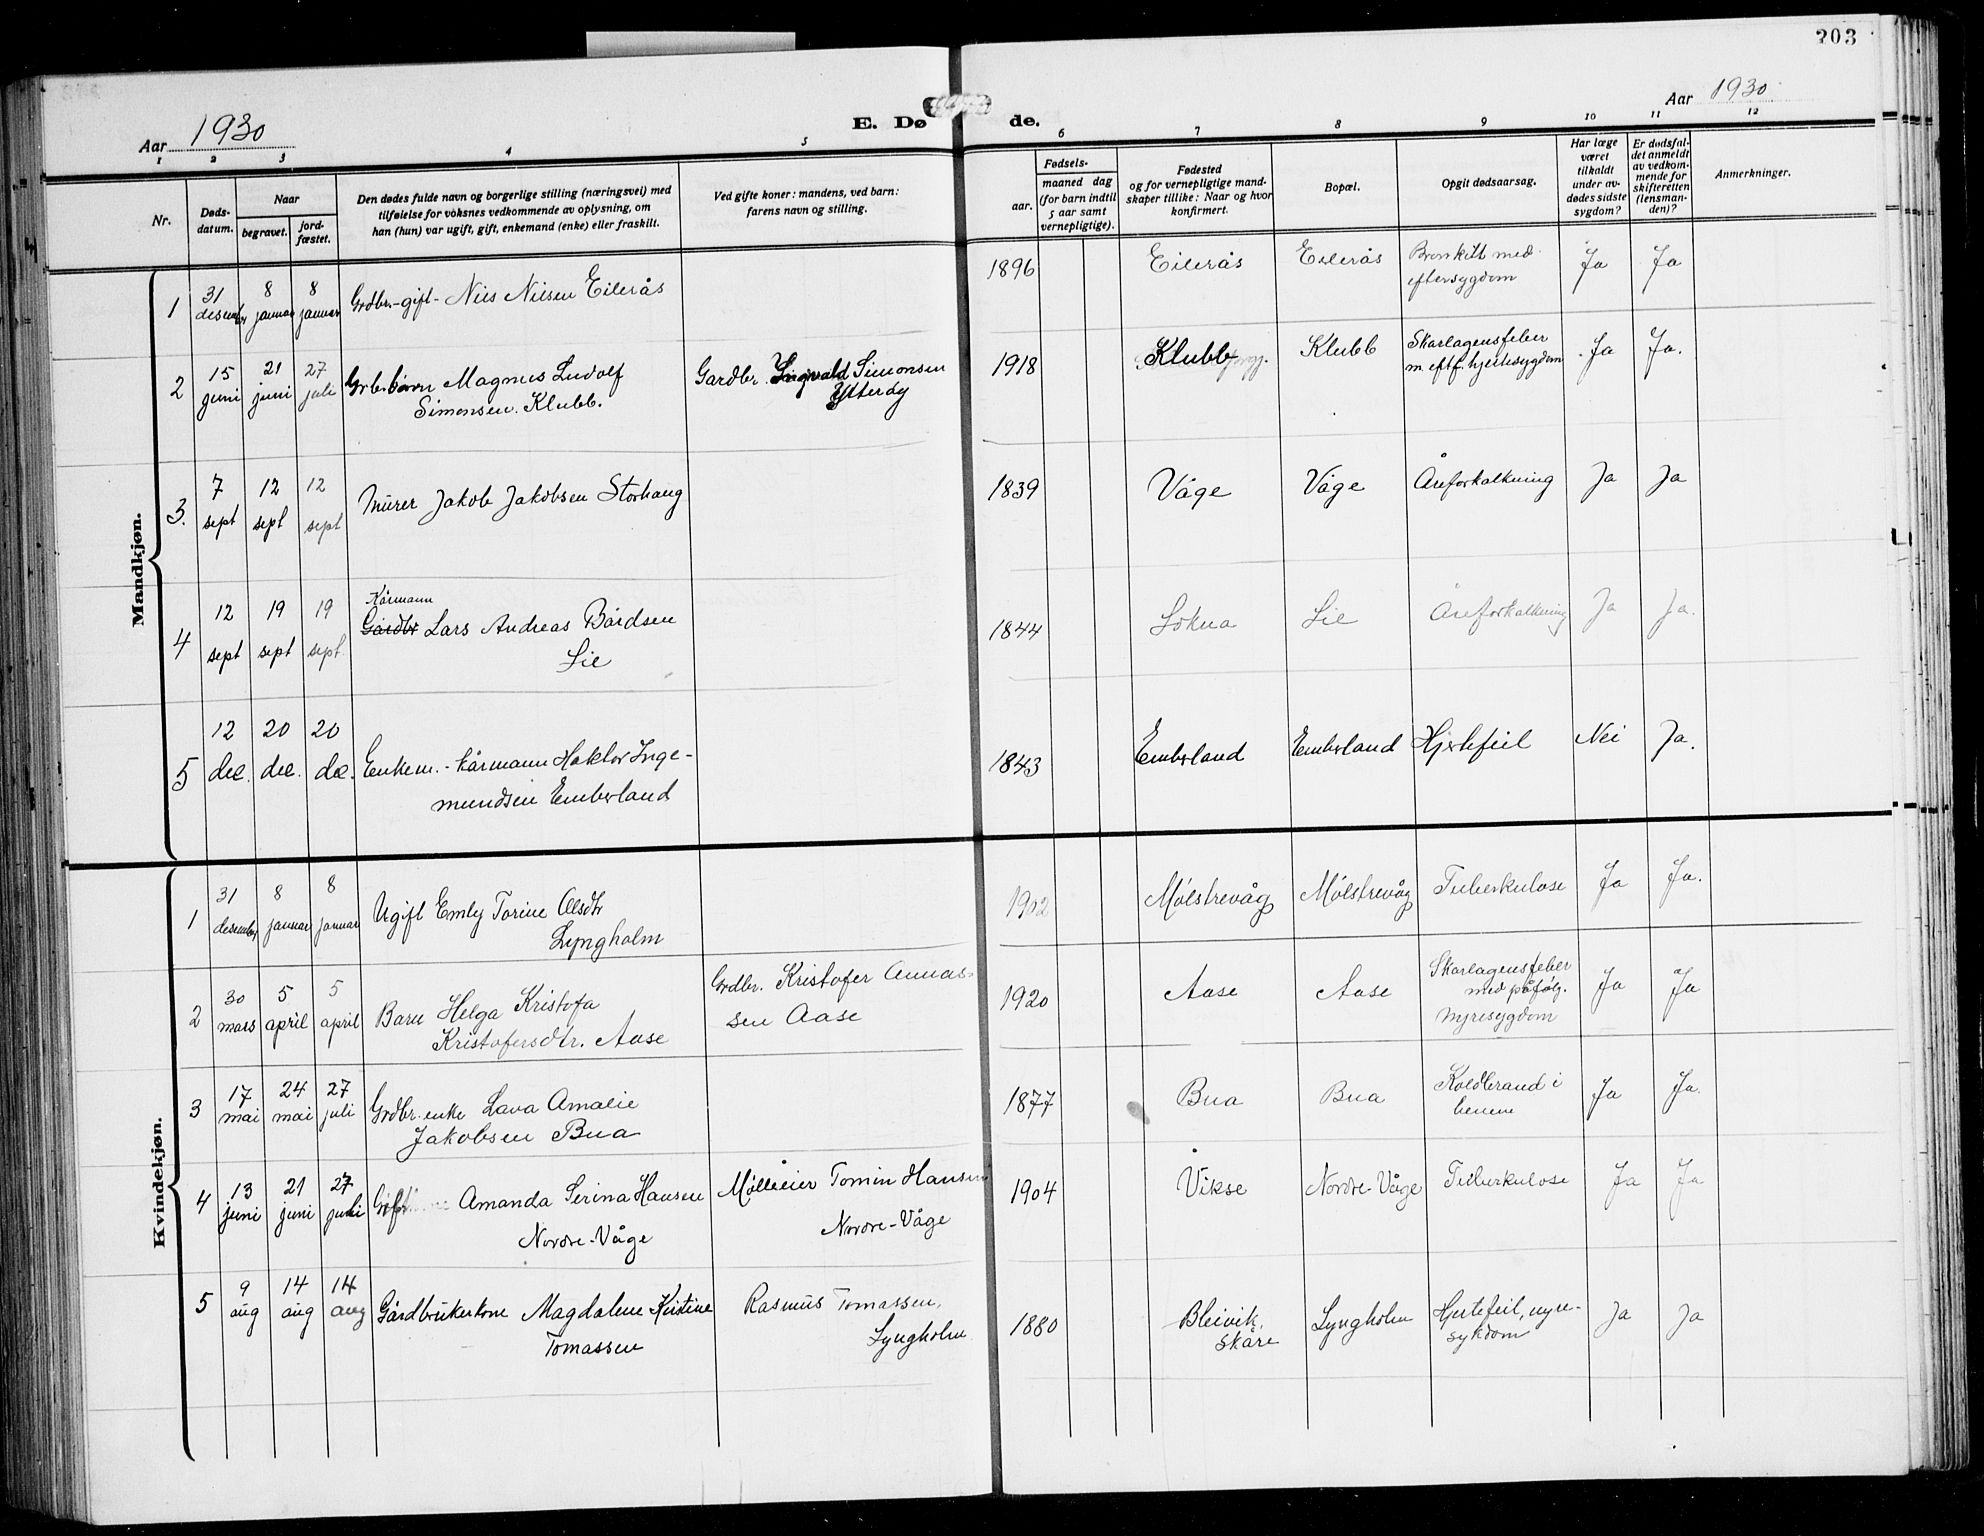 303
Aar 1930
E. Døde.
Aar 1930
1 2 3 4 5 6 7 8 9 10 11 12
Nr.
Døds-
datum.
Naar
begravet.
jord-
fæstet.
Den dødes fulde navn og borgerlige stilling (næringsvei) med
tilføielse for voksnes vedkommende av oplysning, om
han (hun) var ugift, gift, enkemand (enke) eller fraskilt.
Ved gifte koner: mandens, ved barn:
farens navn og stilling.
Fødsels-
aar.
maaned dag
(for barn indtil
5 aar samt
vernepligtige).
Fødested
og for vernepligtige mand-
skaper tillike: Naar og hvor
konfirmert.
Bopæl.
Opgit dødsaarsag.
Har læge
været
tilkaldt
under av-
dødes sidste
sygdom?
Er dødsfal-
det anmeldt
av vedkom-
mende for
skifteretten
(lensman-
den)?
Anmerkninger.
Mandkjøn.
1 31 desember 8 januar 8 januar Grdbr.-gift- Nils Nilsen Eilerås 1896 Eilerås Eilerås Bronkitt med eftersygdom Ja Ja
2 15 juni 21 juni 27 juli Magnus Ludolf Simonsen Klubb. Gardbr. Ingvald Simonsen Ytterøy 1918 Klubb Klubb Skarlagensfeber m. eftf. hjertesygdom Ja Ja.
3. 7 sept 12 sept 12 sept Murer Jakob Jakobsen Storhaug 1839 Våge Våge Åreforkalkning Ja Ja
4 12 sept 19 sept 19 sept. Kårmann Gårdbr Lars Andreas Bårdsen Lie 1844 Sokna Lie Åreforkalkning Ja Ja.
5 12 dec. 20 dec. 20 dec. Enkem. - kårmann Haktor Inge-
mundsen Emberland 1843 Emberland Emberland Hjertefeil Nei Ja.
Kvindekjøn.
1 31 desember 8 januar 8 januar Ugift Emly Torine Olsdtr Lyngholm 1902 Mølstrevåg Mølstrevåg Tuberkulose Ja Ja.
2 30 mars 5 april 5 april Barn Helga Kristofa Kristofersdtr. Aase Grdbr. Kristofer Annas-
sen Aase 1920 Aase Aase Skarlagensfeber med påfølg. nyresygdom Ja Ja
3 17 mai 24 mai 27 juli Grdbr. enke Lava Amalie Jakobsen Bua 1877 Bua Bua Koldbrand i benene Ja Ja.
4 13 juni 21 juni 27 juli Amanda Serina Hansen Nordre-Våge Mølleeier Tomin Hansen Nordre-Våge 1904 Vikse Nordre-Våge Tuberkulose Ja Ja
5 9 aug 14 aug 14 aug Gårdbrukerkone Magdalene Kristine Tomassen Rasmus Tomassen, Lyngholm 1880 Bleivik, Skåre Lyngholm Hjertefeil, nyre-
sykdom Ja Ja